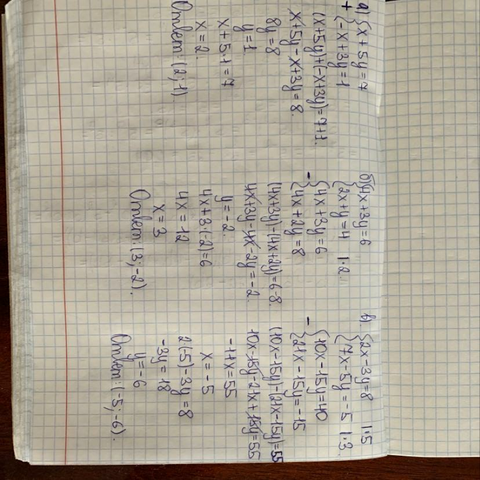 а) {x + 5y = 7
+ {-x + 3y = 1
(x+5y)+(-x+3y)=7+1.
x+5y-x+3y=8.
8y=8
y=1
x+5·1=7
x=2.
Ответ: (2;1)
б) {4x+3y=6
{2x+y=4 |·2.
- {4x+3y=6
{4x+2y=8
(4x+3y)-(4x+2y)=6-8.
4x+3y-4x-2y=-2.
y=-2.
4x+3·(-2)=6
4x=12
x=3
Ответ: (3;-2).
в). {2x-3y=8 |·5
{7x-5y=-5 |·3.
- {10x-15y=40
{21x-15y=-15
(10x-15y)-(21x-15y)=55
10x-15y-21x+15y=55.
-11x=55
x=-5
2(-5)-3y=8
-3y=18
y=-6
Ответ: (-5;-6).